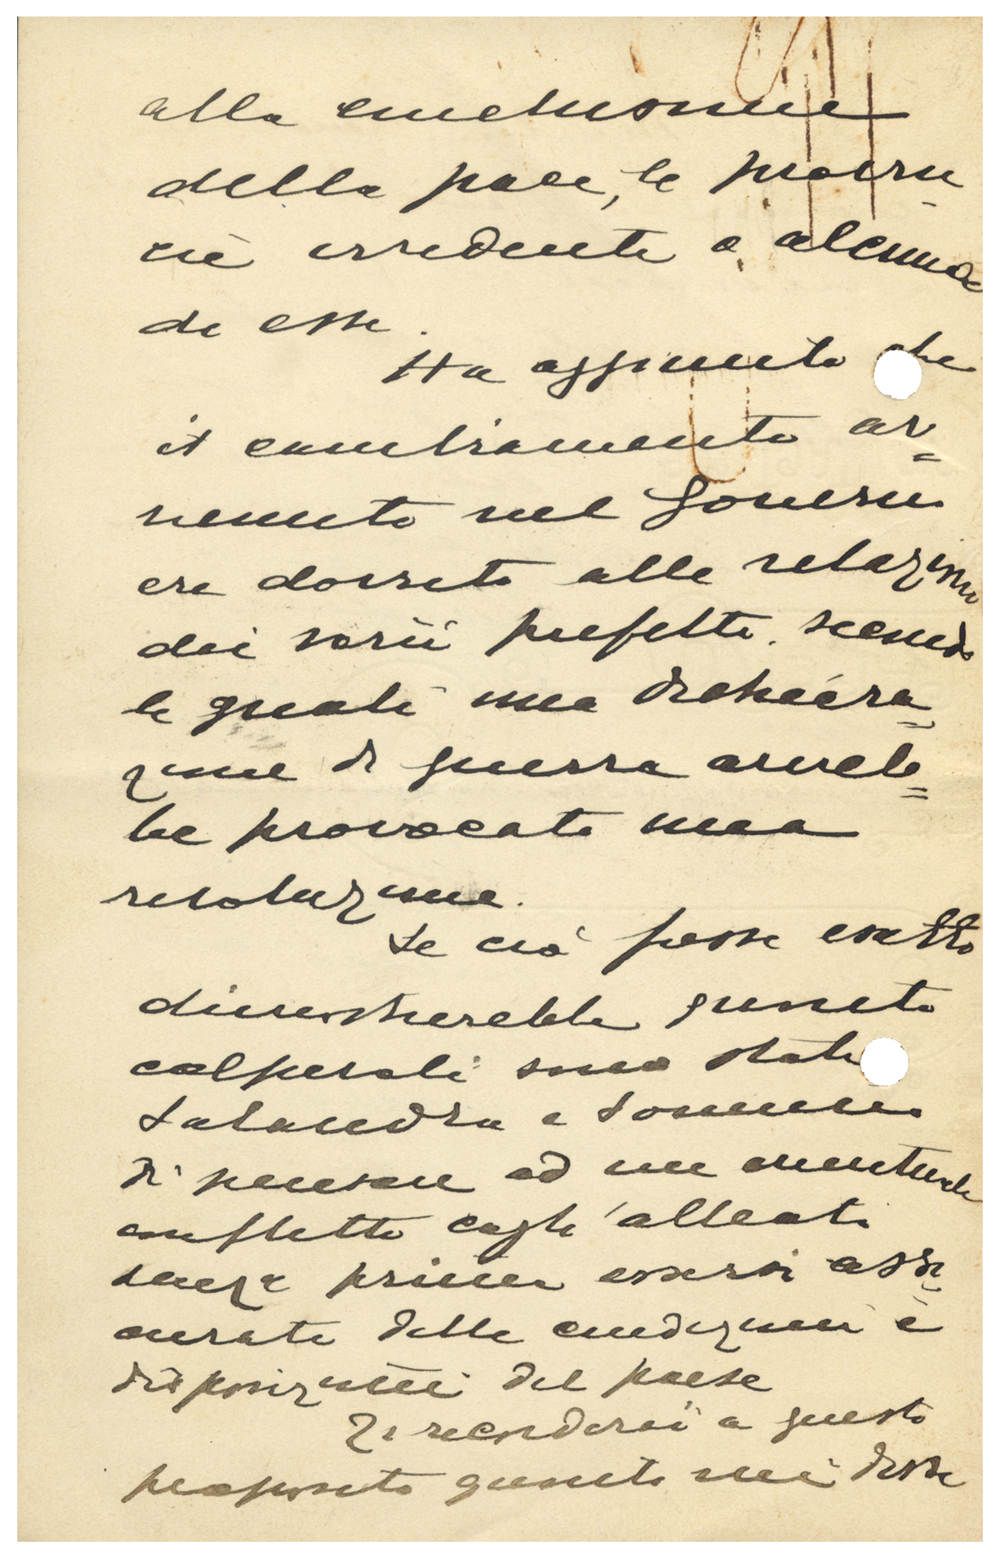 alla conclusione
della pace, le provin-
cie irredente o alcuna
di esse.
Ha aggiunto che
il cambiamento av=
venuto nel Governo
era dovuto alle relazioni
dei varii prefetti, secondo
le quali una dichiara=
zione di guerra avreb=
be provocato una
rivoluzione.
Se ciò fosse esatto
dimostrerebbe quanto
colpevoli sono stati
Salandra e Sonnino
di pensare ad un eventuale
conflitto cogli alleati
senza prima essersi assi=
curati delle condizioni e
disposizioni del paese
Ti ricorderai a questo
proposito quanto mi disse